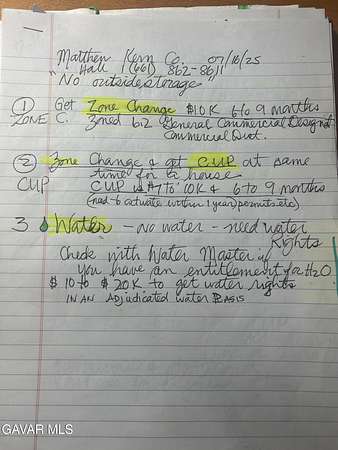 Matthew Kern Co. 07/16/25
" Hall (661) 862-8611
"No outside storage"
① Get Zone Change $10K 6 to 9 months
ZONE C. Zoned General Commercial
Commercial Dist.
② Zone Change & get CUP at same
time for a house
CUP CUP is $7 to 10K & 6 to 9 months
(need to activate within 1 year) permits etc)
3 Water - no water - need water
Rights
Check with Water Master if
you have an entitlement for H2O
$10 to $20K to get water rights
IN AN ADJUDICATED WATER BASIS
GAVAR MLS